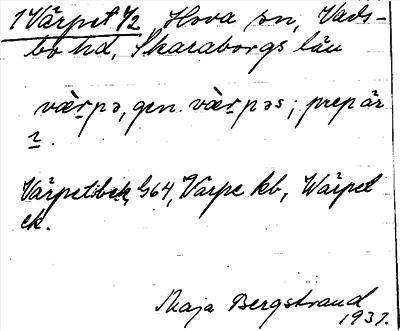 1 Värpet 1/2 Hova sn, Vads-
bo hd, Skaraborgs län
væ̀rpə, gen. væ̀rpəs; prep är
2.
Värpet bek. 964, Värpe kb, Wärpet
ek.
Maja Bergstrand
1937.